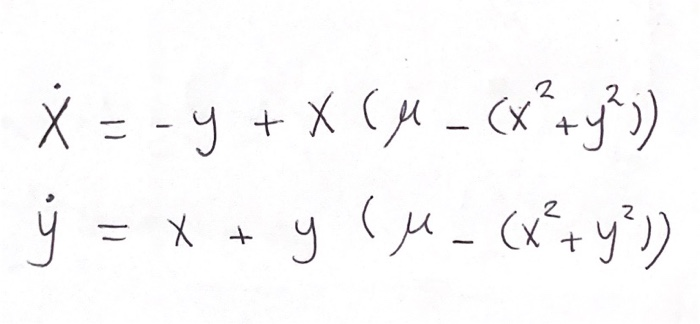 ẋ = -y + x (μ - (x²+y²))
ẏ = x + y (μ - (x²+y²))